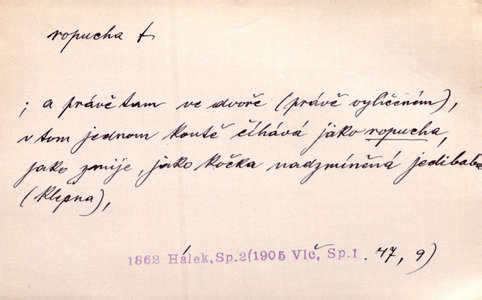 ropucha f
; a právě tam ve dvoře (právě vylíčeném),
v tom jednom koutě číhává jako ropucha,
jako zmije, jako kočka nadzmíněná jedibaba
(klepna),
1862 Hálek, Sp. 2 (1905 Vlč, Sp. 1 . 47, 9)